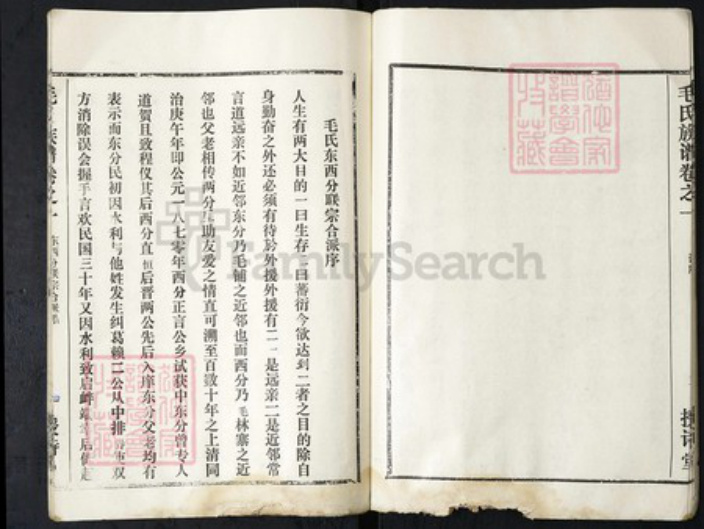 毛氏族谱卷之一
毛氏东西分联宗合派序
人生有两大目的一曰生存二曰蕃衍今欲达到二者之目的除自
身勤奋之外还必须有待於外援外援有二一是远亲二是近邻常
言道远亲不如近邻东分乃毛铺之近邻也而西分乃毛林寨之近
邻也父老相传两分互助友爱之情直可溯至百数十年之上清同
治庚午年即公元一八七零年西分正言公乡试获中东分曾专人
道贺且致程仪其后西分直恒后晋两公先后入庠东分父老均有
表示而东分民初因水利与他姓发生纠葛赖二公从中排 双
方消除误会握手言欢民国三十年又因水利致启衅端 后
毛氏族谱卷之一
东西分联宗合派序
FamilySearch